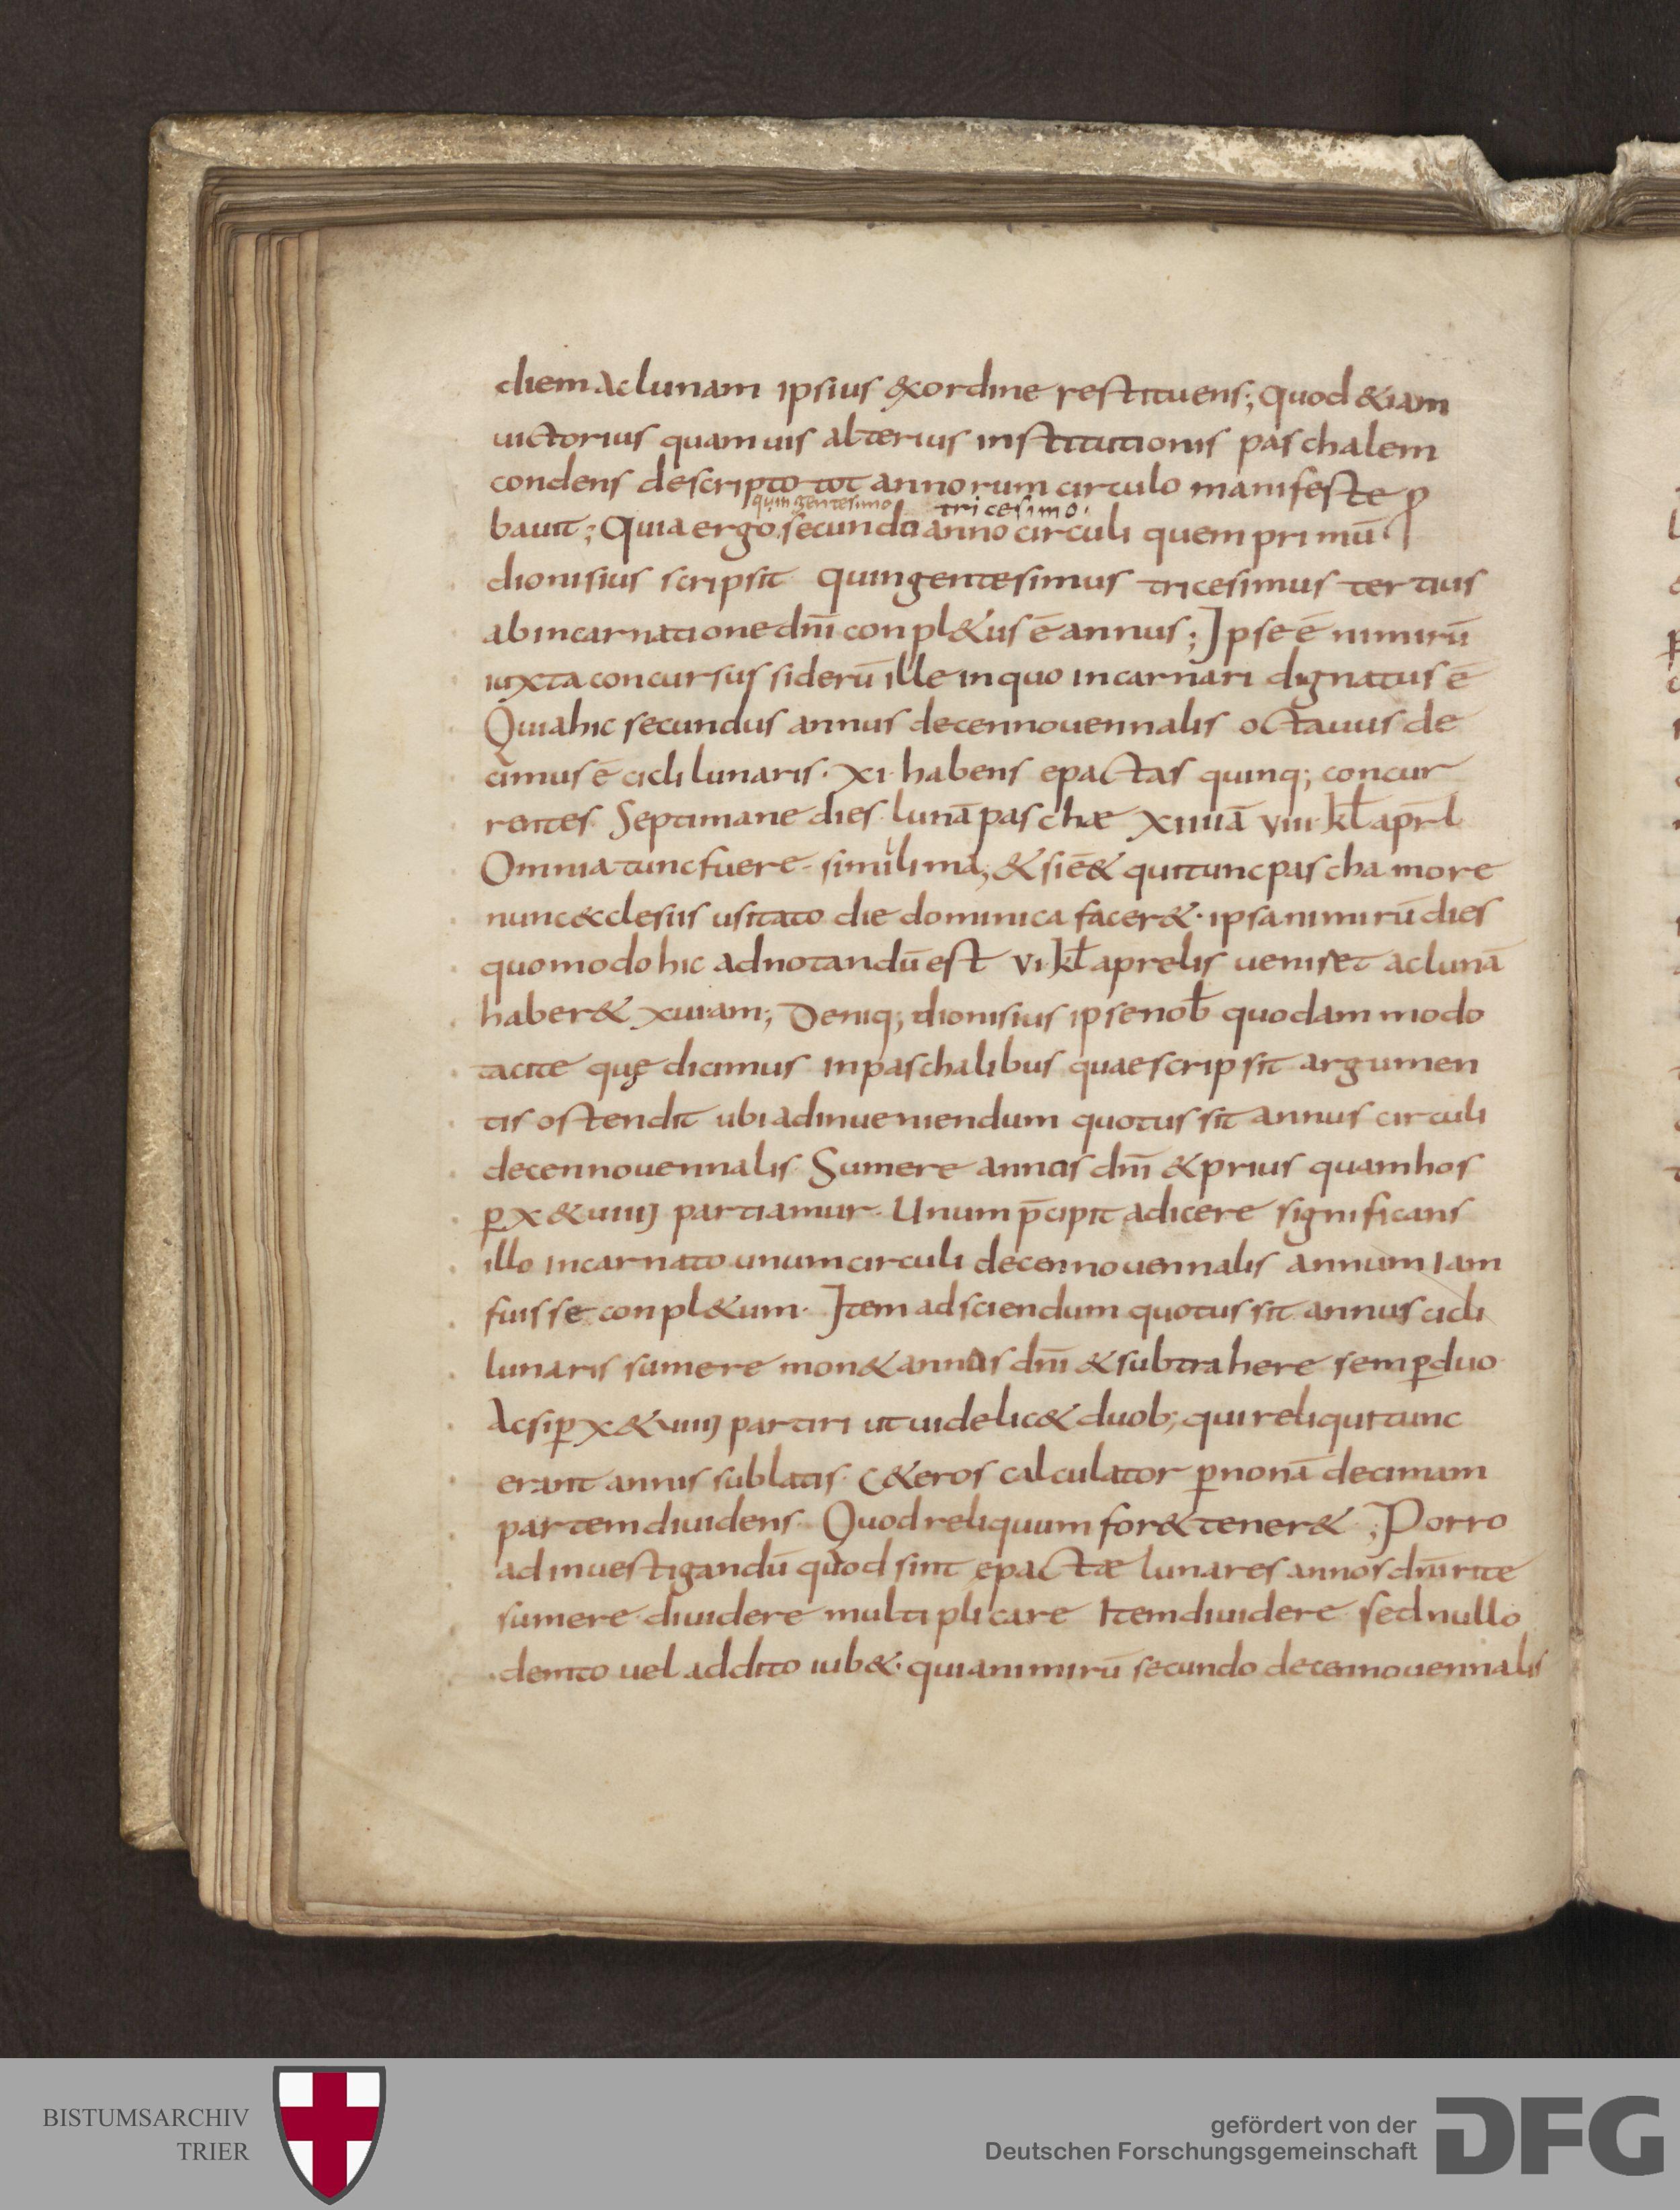 diem ac lunam ipsius & ordine restituens; quod &iam
uictorius quamuis alterius institutionis paschalem
condens descripto tot annorum circulo manifeste p
quingentesimo tricesimo
bauit; Quia ergo secundo anno circuli quem primū
dionisius scripsit quingentesimus tricesimus tertius
ab incarnatione dnī conpl&us ē annus; Ipse ē nimirū
iuxta concursus siderū ille in quo incarnari dignatus ē
Quia hic secundus annus decennouennalis octauus de
cimus ē cicli lunaris. XI. habens epactas quinq; concur
rentes Septimane dies. lunā paschæ XIIIIā VIII. kł aprl
Omnia tunc fuere simillima; & si ē& qui tunc pascha more
nunc &cclesiis usitato die dominica facer&. ipsa nimirū dies
quomodo hic adnotandū est VI. kł aprelis ueniret ac lunā
haber& xuiam; Deniq; dionisius ipse nob quodam modo
tacite quę dicimus in paschalibus quae scripsit argumen
tis ostendit ubi ad inueniendum quotus sit annus circuli
decennouennalis Sumere annos dnī & prius quam hos
p x & uiiij partiamur. Unum p̄cipit adicere significans
illo incarnato unum circuli decennouennalis annum iam
fuisse conpl&um. Item ad sciendum quotus sit annus cicli
lunaris sumere mon& annos dnī & subtrahere semp duo
Ac si p x & uiiij partiri ut uidelic& duob; qui reliqui tunc
erant annis sublatis. C&eros calculator p nonā decimam
partem diuidens. Quod reliquum for& tener&; Porro
ad inuestigandū quod sint epactæ lunares annos dnī rite
sumere diuidere multiplicare Item diuidere sed nullo
demto uel addito iub&. quia nimirū secundo decennouennalis
BISTUMSARCHIV
TRIER
gefördert von der
Deutschen Forschungsgemeinschaft
DFG